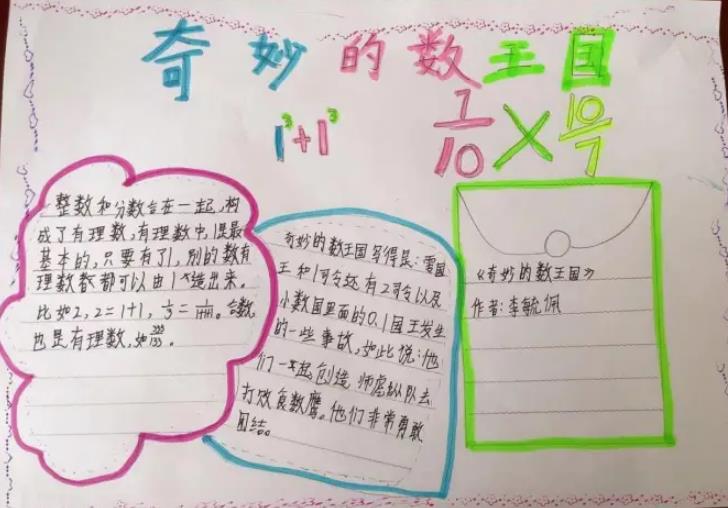 奇妙的数王国
1³+1³
7/10 × 10/7
整数和分数合在一起,构
成了有理数,有理数中,1是最
基本的,只要有了1,别的数有
理数都可以由1造出来。
比如2,2=1+1,
也是有理数,如
奇妙的数王国写得是:零国
王和1司令还有2司令以及
小数国里面的0.1国王发生
的一些事故,如此说:他
们一起创造
打败食数鹰。他们非常勇敢
团结。
《奇妙的数王国》
作者:李毓佩